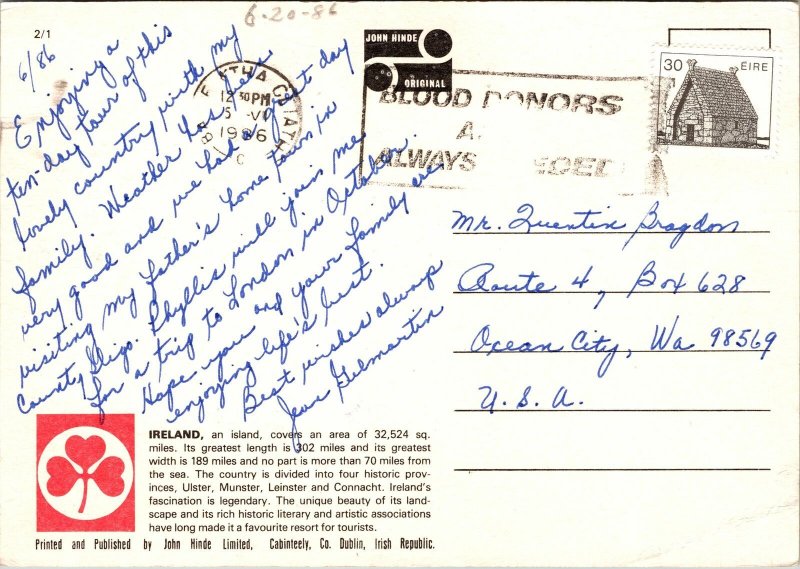 6-20-86
2/1
6/86
Enjoying a
ten-day tour of this
lovely country with my
family. Weather has been
very good and we had a great day
visiting my father's home town in
County Sligo. Phyllis will join me
for a trip to London in October.
Hope you and your family are
enjoying life's best.
Best wishes always
Jean Gilmartin
JOHN HINDE
ORIGINAL
ATHA CLIATH
12 30PM
5 VI
1986
BLOOD DONORS
A
ALWAYS
30 EIRE
Mr. Quentin Bragdon
Route 4, Box 628
Ocean City, Wa 98569
U. S. A.
IRELAND, an island, covers an area of 32,524 sq.
miles. Its greatest length is 302 miles and its greatest
width is 189 miles and no part is more than 70 miles from
the sea. The country is divided into four historic prov-
inces, Ulster, Munster, Leinster and Connacht. Ireland's
fascination is legendary. The unique beauty of its land-
scape and its rich historic literary and artistic associations
have long made it a favourite resort for tourists.
Printed and Published by John Hinde Limited, Cabinteely, Co. Dublin, Irish Republic.